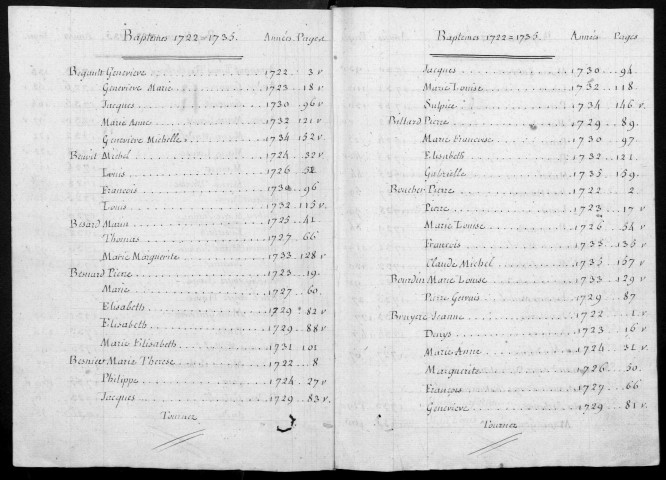 Baptemes 1722=1735. Années. Pages
Begault Genevieve 1722 3 v
Genevieve Marie 1723 18 v
Jacques 1730 96 v
Marie Anne 1732 121 v
Genevieve Michelle 1734 152 v
Benoit Michel 1724 32 v
Louis 1726 52
François 1730 96
Louis 1732 115 v.
Besard Marin 1725 41
Thomas 1727 66
Marie Marguerite 1733 128 v
Besnard Pierre 1723 19
Marie 1727 60
Elisabeth 1729 82 v
Elisabeth 1729 88 v
Marie Elisabeth 1731 101
Besnier Marie Therese 1722 8
Philippe 1724 27 v
Jacques 1729 83 v.
Tournez
Baptemes 1722=1735. Années Pages
Jacques 1730 94
Marie Louise 1732 118
Sulpice 1734 146 v.
Billard Pierre 1729 89
Marie Francoise 1730 97
Elisabeth 1732 121
Gabrielle 1735 159
Boucher Pierre 1722 2
Pierre 1723 17 v
Marie Louise 1726 54 v
François 1733 135 v
Claude Michel 1735 157 v
Bourdin Marie Louise 1733 129 v
Pierre Gervais 1729 87
Bruyere Jeanne 1722 1 v
Denys 1723 16 v
Marie Anne 1724 31 v
Marguerite 1726 50
François 1727 66
Genevieve 1729 81 v
Tournez